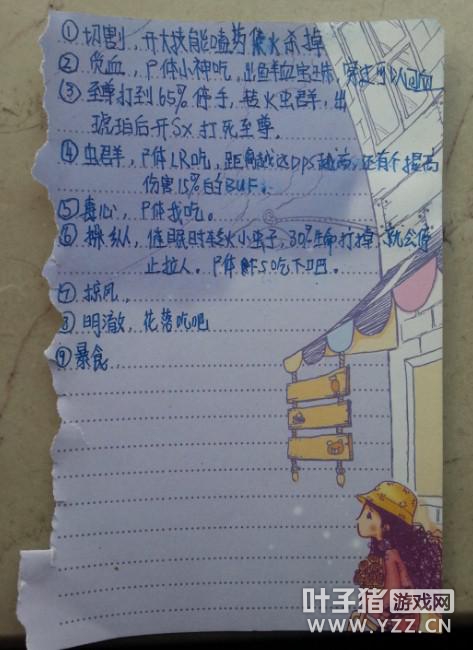 ① 切割，开大技能嗑药集火杀掉
② 侥血，尸体小神吃，出鲜血宝珠，穿过可以回血
③ 至尊打到65%停手，转火虫群，出
琥珀后开SX打死至尊。
④ 虫群，尸体LR吃，距离越远DPS越高，还有个提高
伤害15%的BUF。
⑤ 毒心，尸体我吃。
⑥ 操纵，催眠时转火小虫子，30%生命打掉，就会停
止拉人。尸体鲜S吃下吧。
⑦ 掠风。
⑧ 明澈，花落吃吧
⑨ 暴食。
叶子猪游戏网
www.YZZ.CN